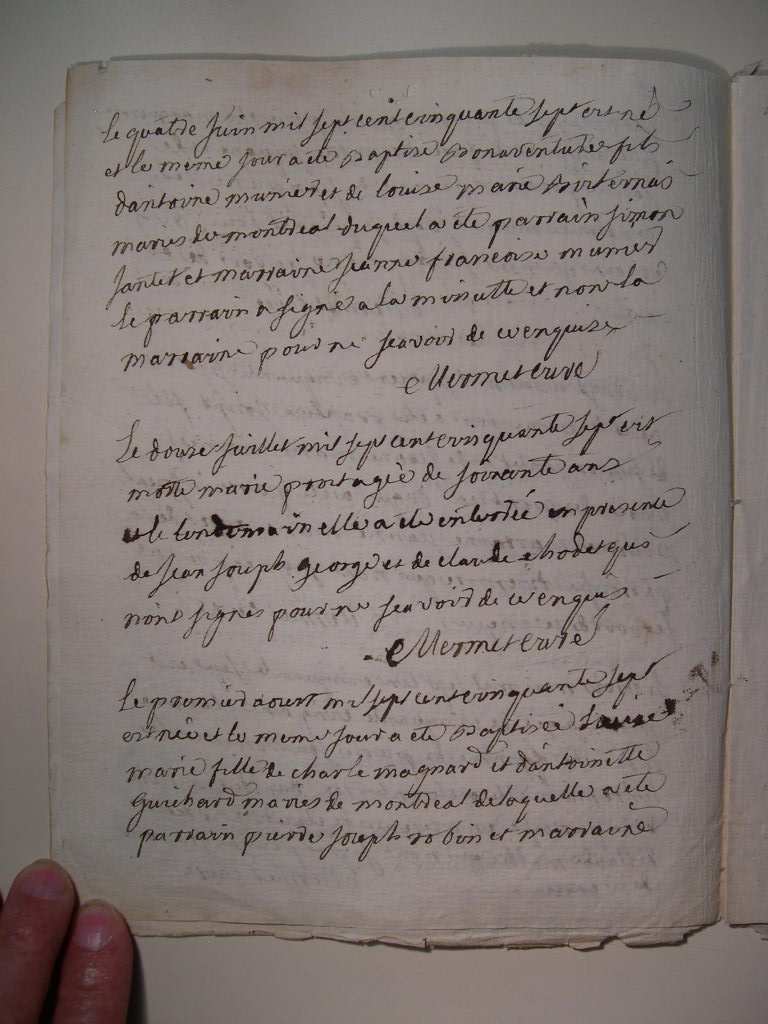 le quatre Juin mil sept cent cinquante sept est né
et le meme jour a eté Baptisé Bonaventure fils
dantoine munier et de louise marie
mariés de montreal duquel a eté parrain simon
Jantet et marraine jeanne francoise munier
le parrain a signé a la minutte et non la
marraine pour ne scavoir de ce enquise
Mermet curé
le douze juillet mil sept cent cinquante sept est
morte marie prost agée de soixante ans
et le lendemain elle a eté enterrée en presente
de jean joseph george et de claude chodet qui
nont signes pour ne scavoir de ce enquis
Mermet curé
le premier aoust mil sept cent cinquante sept
est née et le meme jour a eté Baptiseé Louise
marie fille de charle magnard et dantoinette
Guichard mariés de montreal de laquelle a eté
parrain pierre joseph robin et marraine